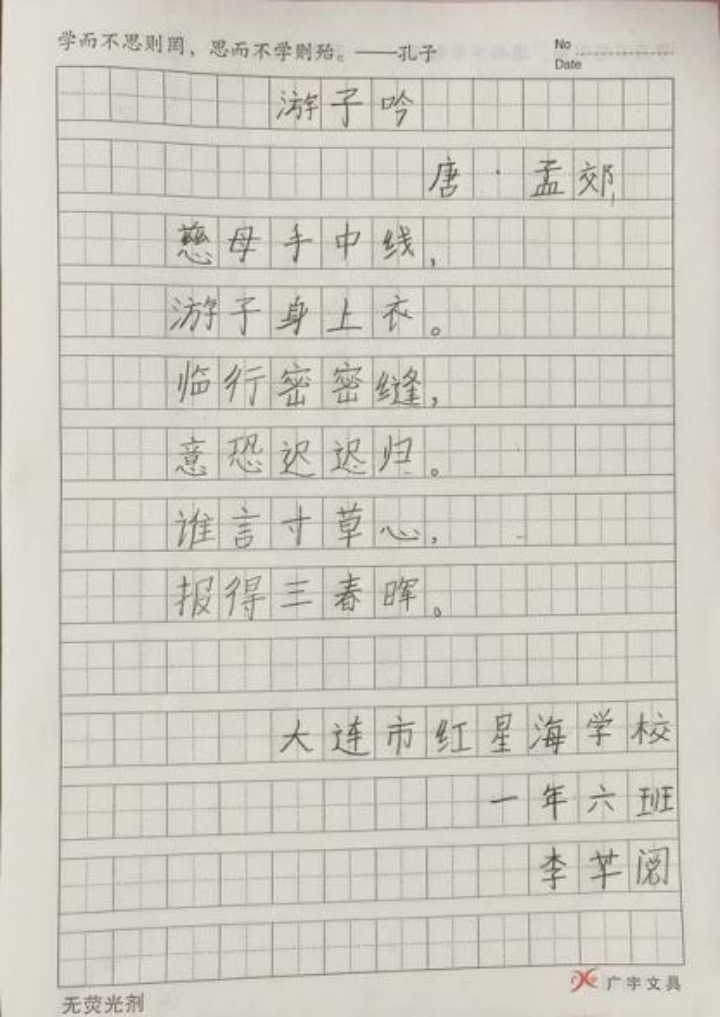 学而不思则罔，思而不学则殆。——孔子
No
Date
游子吟
唐·孟郊
慈母手中线，
游子身上衣。
临行密密缝，
意恐迟迟归。
谁言寸草心，
报得三春晖。
大连市红星海学校
一年六班
李芊阅
广宇文具
无荧光剂